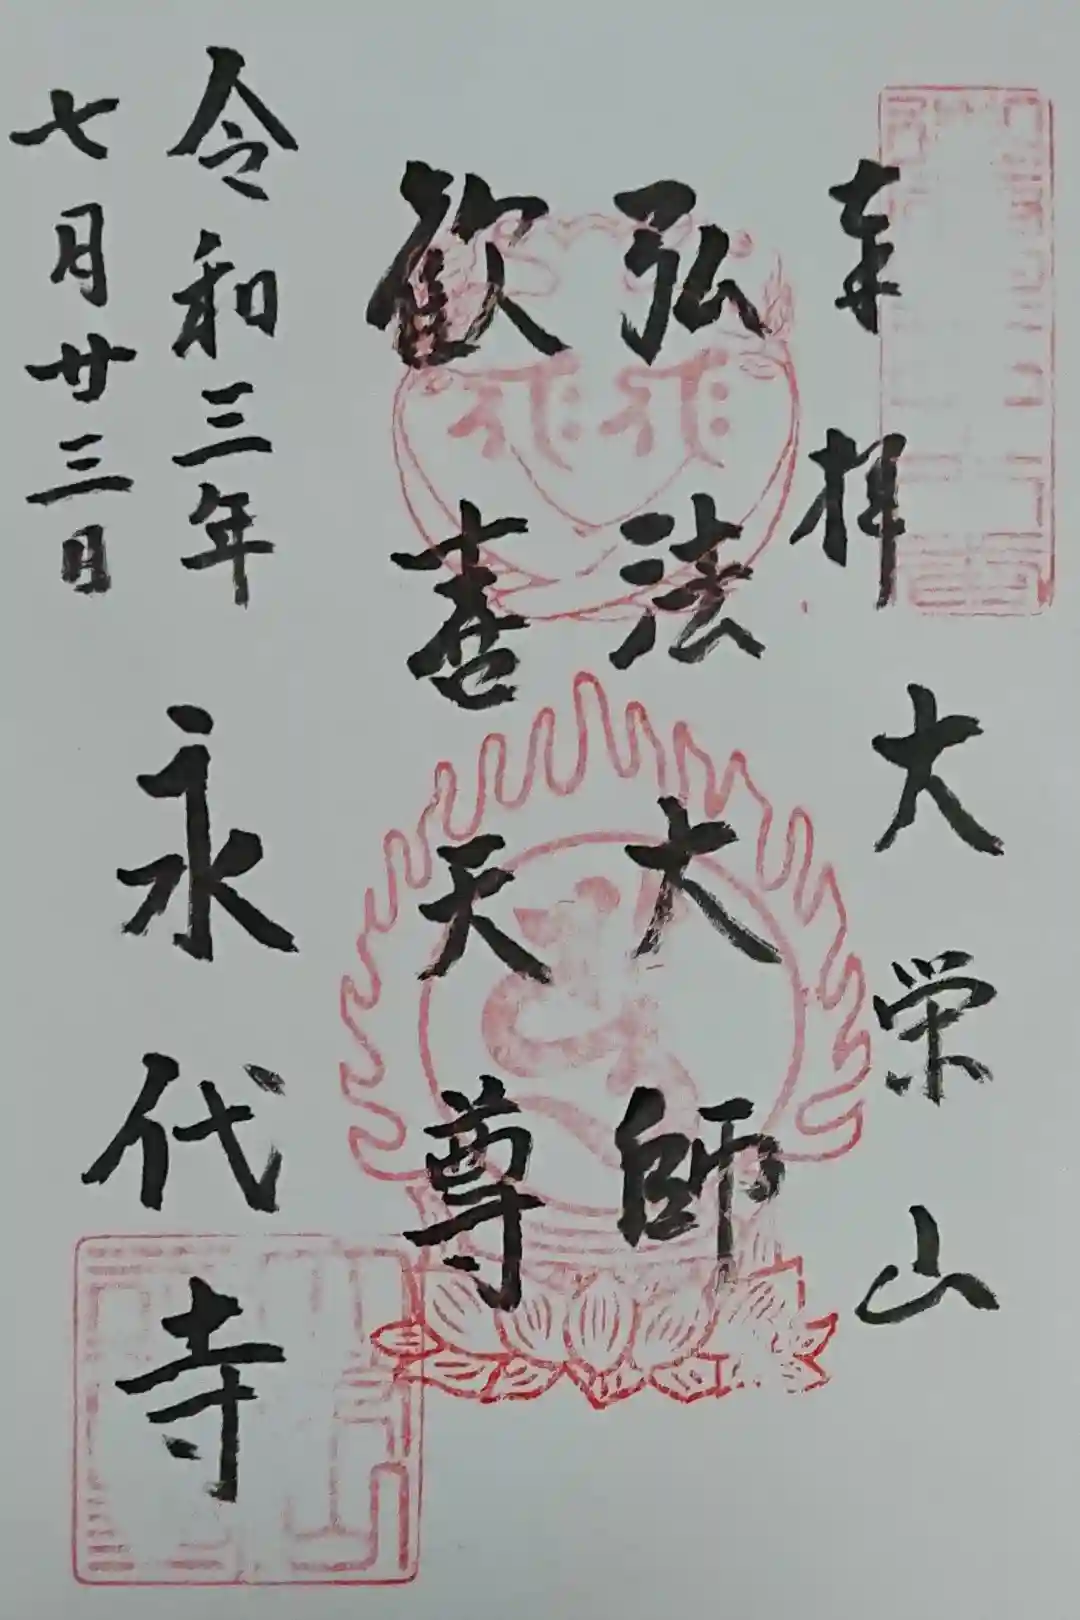 奉拝 大栄山
弘法大師
歓喜天尊
令和三年
七月廿三日
永代寺